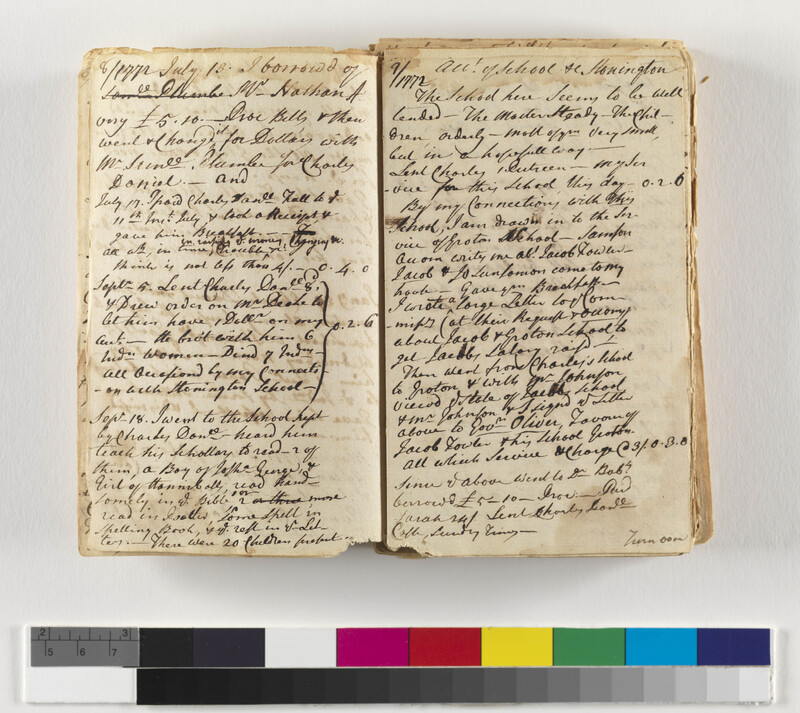 8/1772 July 13. I borrowd of
Mr Nathan A
very £5.10.— Proc Bills & then
went & Changd it for Dollars with
Mr Plumbe for Charles
Daniel.— and
July 17. I paid Charles Danll Full to ye
11th Inst. July & took a Receipt &
gave him Breakfast.—
all wch, in time, trouble &c.
in raising ye money, Changing &c.
think is not less than 4/.— 0.4.0
Septr 5. Lent Charles Danll 8/.
& Drew order on Mr to
let him have 1 Dollr on my
Acct.— He brot with him 6
Indn Women — Dind 7 Indns —
All Occasiond by my Connecti-
-on with Stonington School —
0.2.6
Sepr 18. I went to the School kept
by Charles Danll — heard him
teach his Schollars to read — 2 of
them, a Boy of Josha George, &
Girl of Hannaball, read Hand-
somely in ye Bible 2 or three more
read in Psalter, Some Spell in
Spelling Book, & ye rest in ye Let-
ters.— There were 20 Children present
9/1772
Acct. of School at Stonington
The School here Seems to be well
tended — The Master Steady — The Chil-
dren orderly — most of ym very Small,
but in a hopefull way —
Lent Charles 1 — my Ser
vice for this School this day — 0.2.6
By my Connections with this
School, I am drawn in to the Ser-
vice of Groton School — Samson
Occom writs me abt. Jacob Fowler —
Jacob & come to my
house — Gave ym Breakfast —
I wrote a large Letter to ye Com-
missrs (at their Request &
about Jacob & Groton School to
get Jacobs Salary raisd —
Then went from Charles's School
to Groton & with Mr Johnson
viewd ye State of Jacobs School
& Mr Johnson & I Signd ye Letter
above to Govr Oliver, Favour of
Jacob Fowler & his School Groton.
All which Service & Charge @ 3/ 0.3.0
Since ye above went to Dr Babk
borrowd £5-10- Proc — Paid
Sarah Lent Charles Danll
Cash, Sundry Times —
Turn over